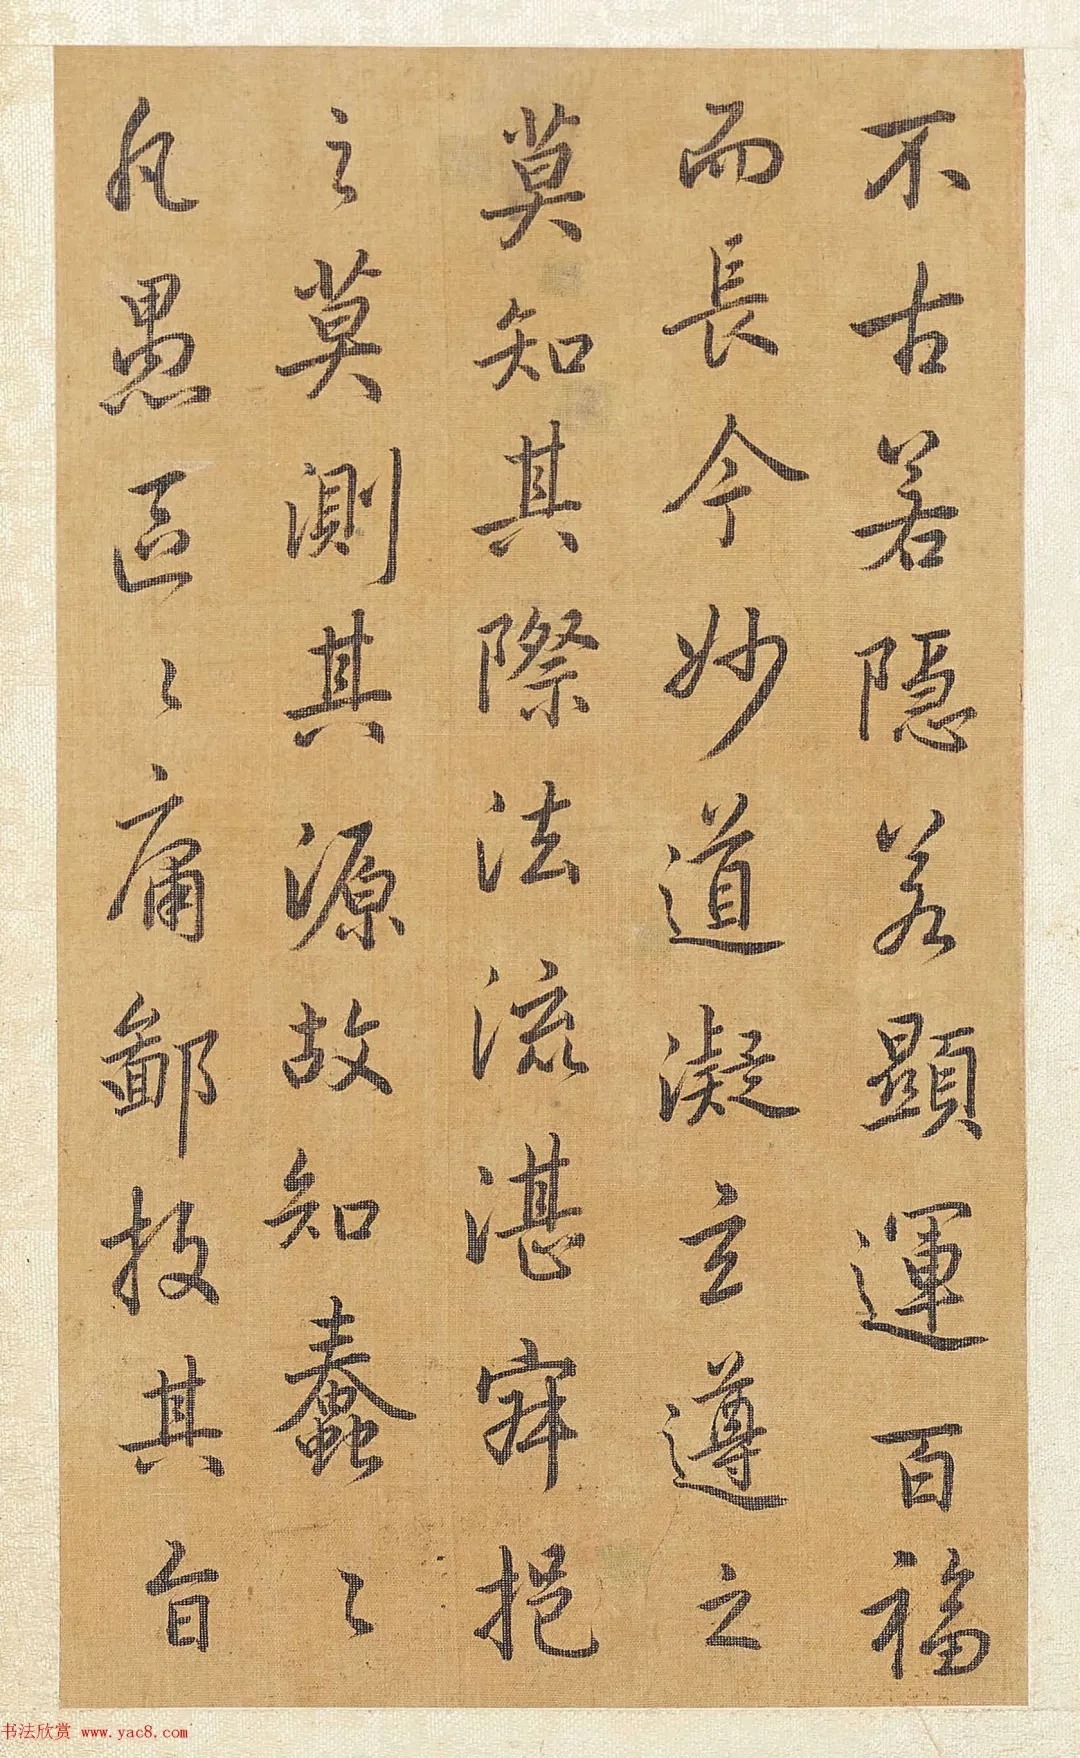 不古若隱若顯運百福
而長今妙道凝玄遵之
莫知其際法流湛寂挹
之莫測其源故知蠢〻
凡愚區〻庸鄙投其旨
书法欣赏 www.yac8.com